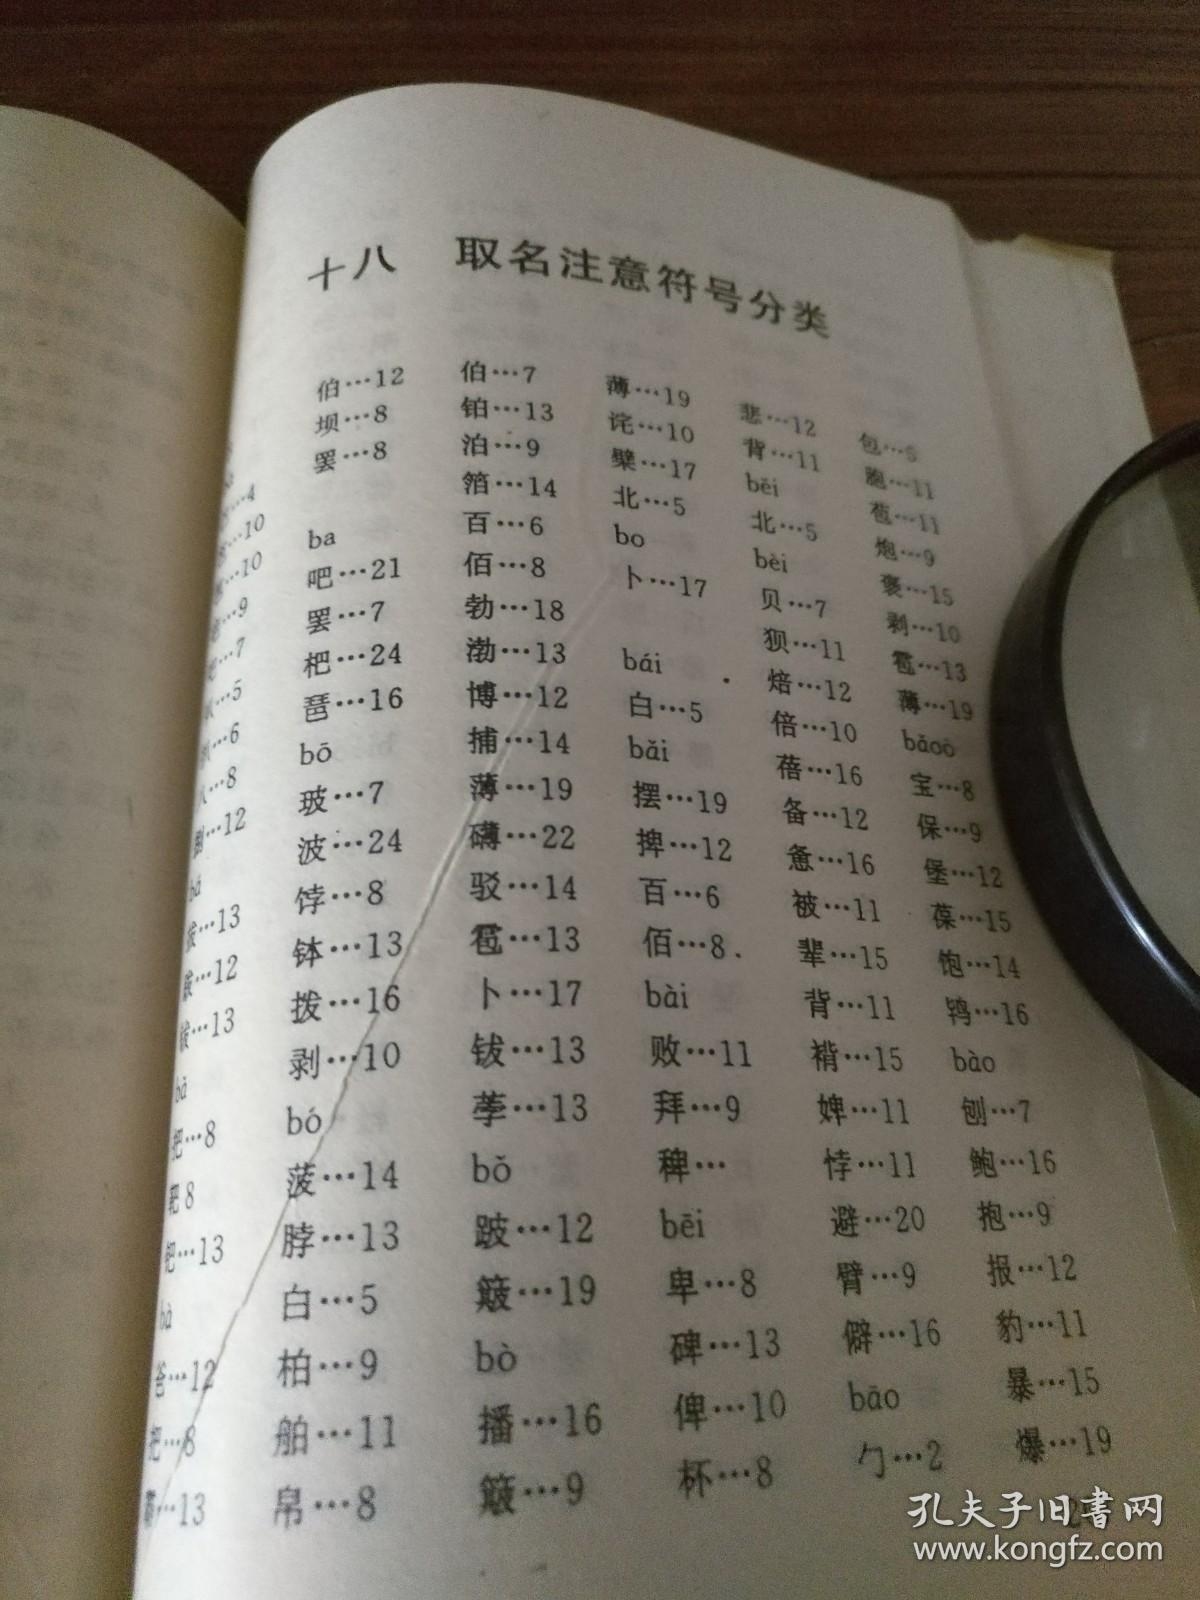 十八 取名注意符号分类
拔…13
跋…12
把…8
靶8
钯…13
爸…12
把…8
伯…12
坝…8
罢…8
ba
吧…21
罢…7
杷…24
琶…16
bō
玻…7
波…24
饽…8
钵…13
拨…16
剥…10
bó
菠…14
脖…13
白…5
柏…9
舶…11
帛…8
伯…7
铂…13
泊…9
箔…14
百…6
佰…8
勃…18
渤…13
博…12
捕…14
薄…19
礴…22
驳…14
雹…13
卜…17
钹…13
荸…13
bǒ
跛…12
簸…19
bò
播…16
簸…9
薄…19
诧…10
檗…17
北…5
bo
卜…17
bái
白…5
bǎi
摆…19
捭…12
百…6
佰…8.
bài
败…11
拜…9
稗…
bēi
卑…8
碑…13
俾…10
杯…8
悲…12
背…11
běi
北…5
bèi
贝…7
狈…11
焙…12
倍…10
蓓…16
备…12
惫…16
被…11
辈…15
背…11
褙…15
婢…11
悖…11
避…20
臂…9
僻…16
bāo
勹…2
包…5
胞…11
苞…11
炮…9
褒…15
剥…10
雹…13
薄…19
bǎoò
宝…8
保…9
堡…12
葆…15
饱…14
鸨…16
bào
刨…7
鲍…16
抱…9
报…12
豹…11
暴…15
爆…19
孔夫子旧书网
www.kongfz.com